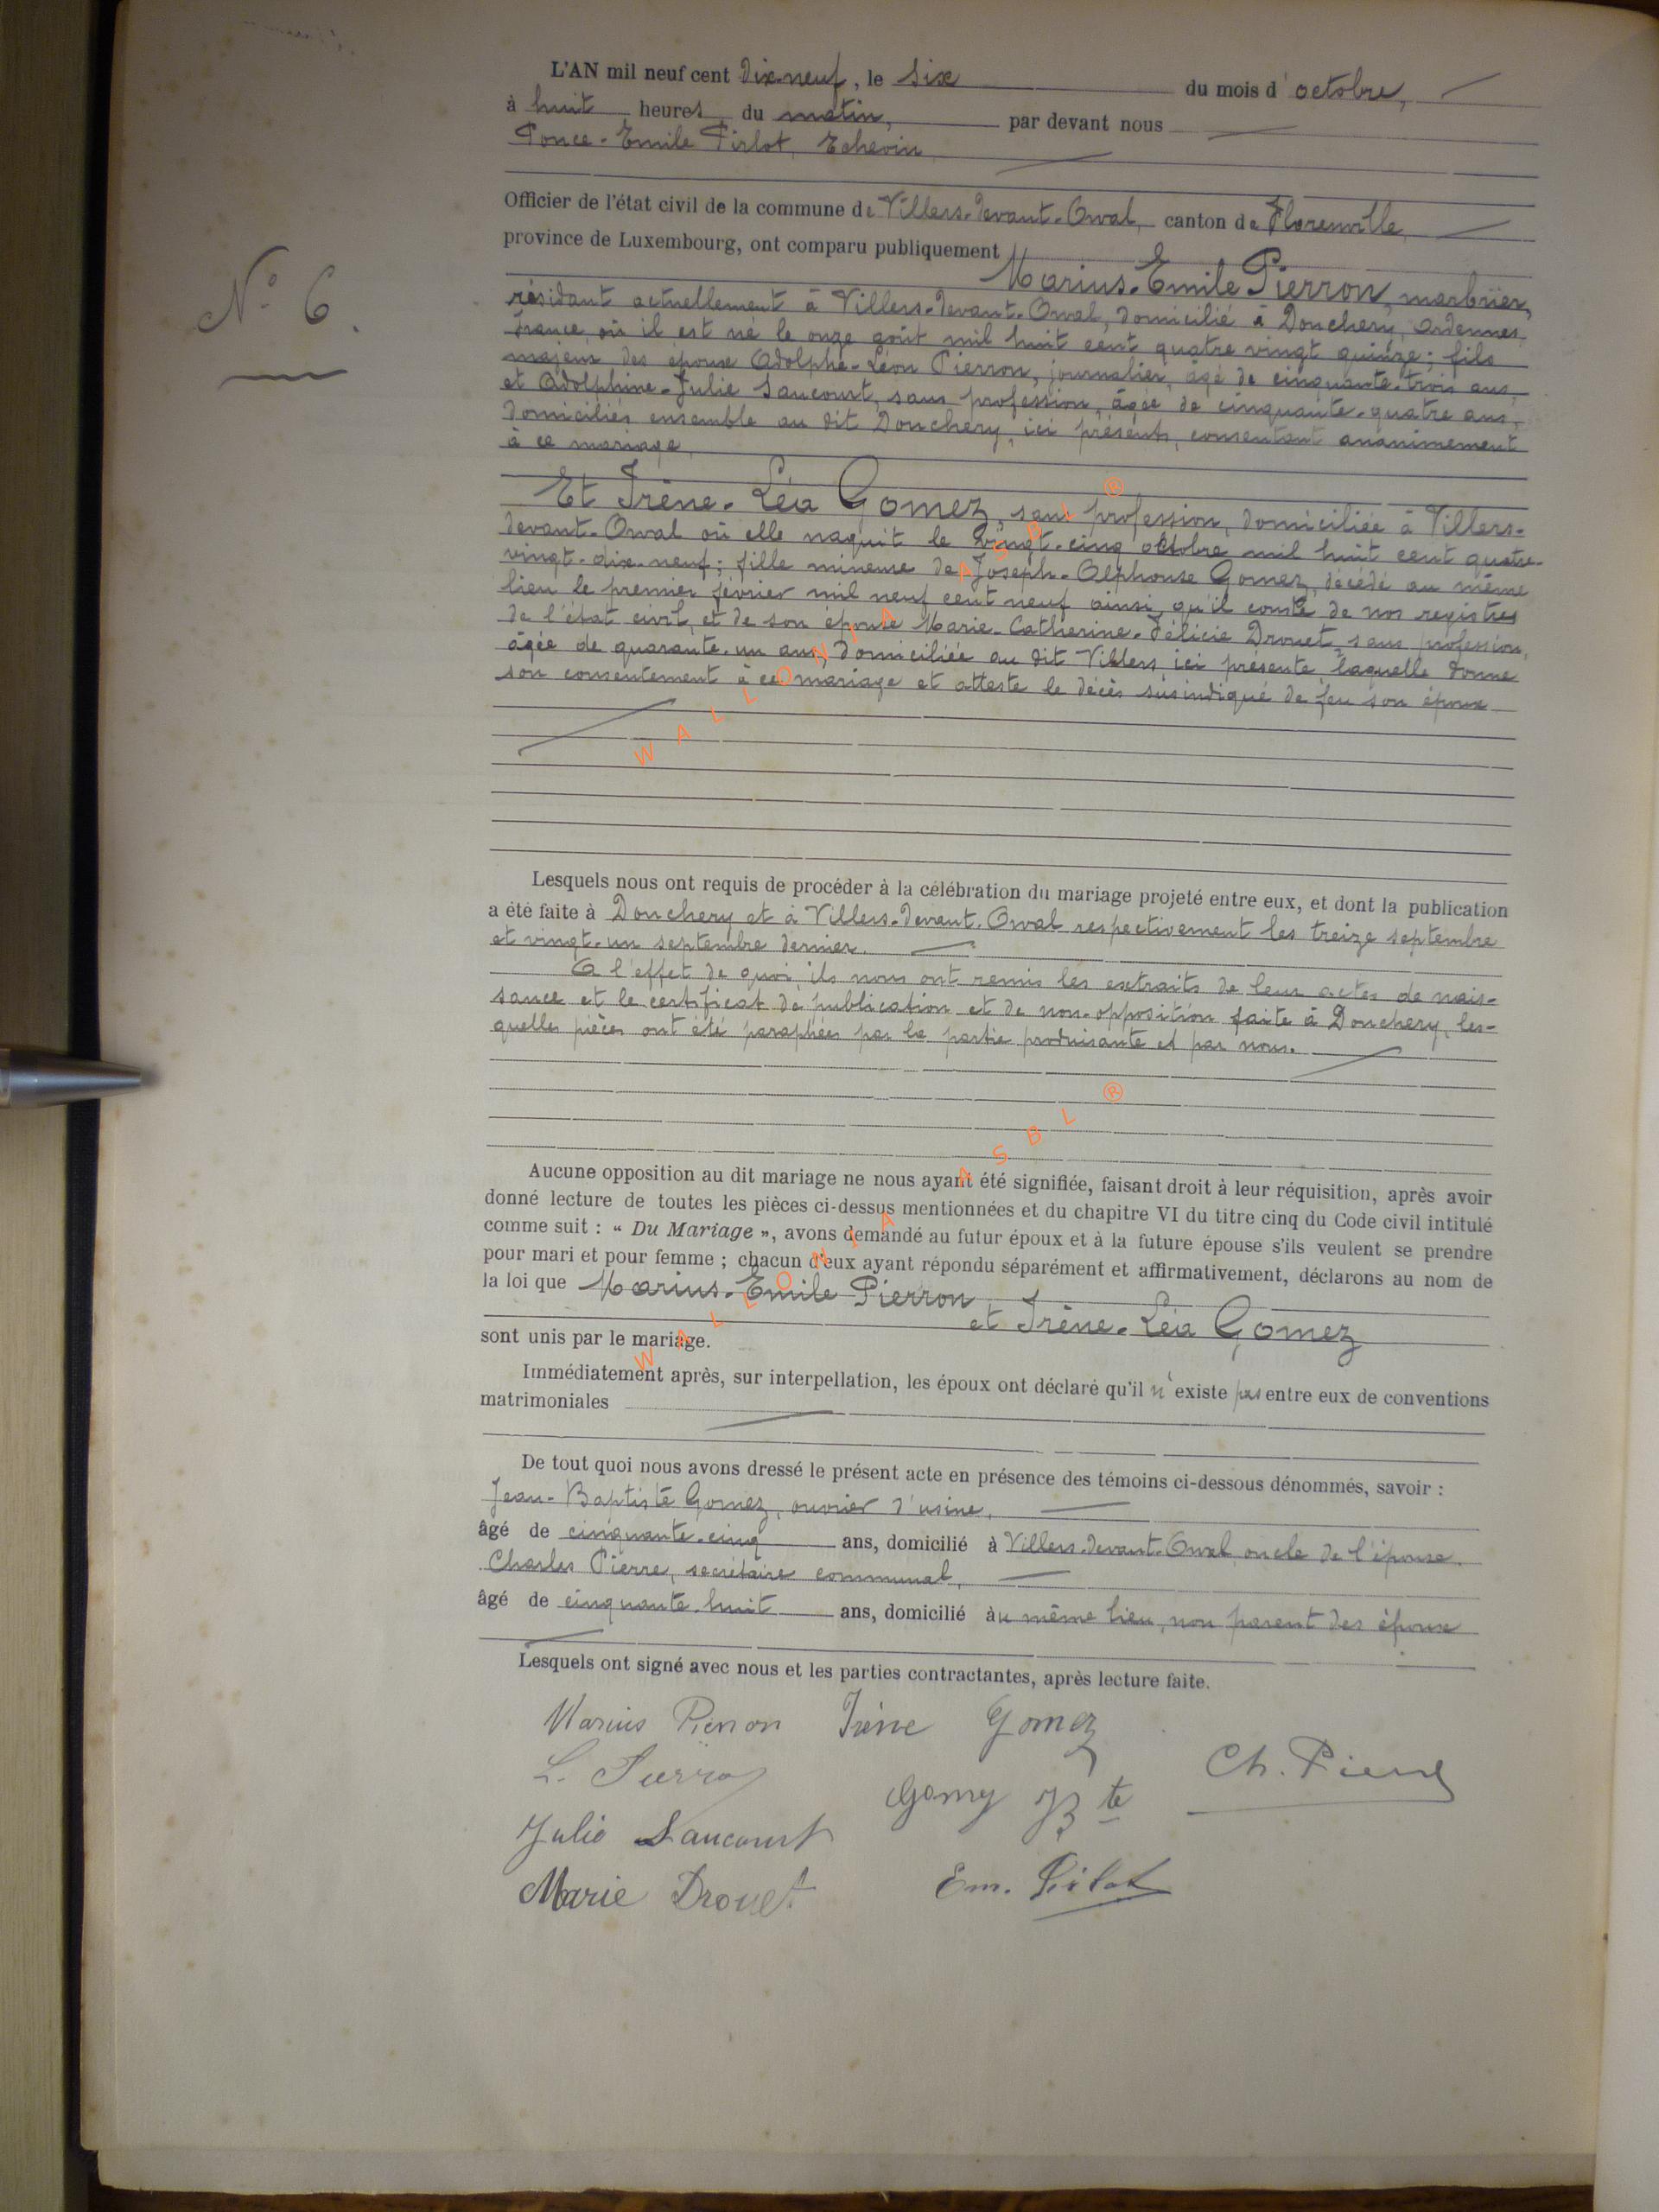 L'AN mil neuf cent dix-neuf, le six du mois d'octobre,
à huit heures du matin, par devant nous
Ponce-Emile Pirlot, Echevin
Officier de l'état civil de la commune de Villers-devant-Orval, canton de Florenville
province de Luxembourg, ont comparu publiquement
N° 6.
Marius-Emile Pierron, marbrier,
résidant actuellement à Villers-devant-Orval, domicilié à Donchery, Ardennes,
France, où il est né le onze août mil huit cent quatre vingt quinze; fils
majeur des époux Adolphe-Léon Pierron, journalier, âgé de cinquante-trois ans,
et Adolphine-Julie Saucourt, sans profession, âgée de cinquante-quatre ans,
domiciliés ensemble au dit Donchery, ici présents, consentant ananimement
à ce mariage.
Et Irène-Léa Gomez, sans profession, domiciliée à Villers-
devant-Orval où elle naquit le vingt-cinq octobre mil huit cent quatre-
vingt-dix-neuf; fille mineure de Joseph-Alphonse Gomez, décédé au même
lieu le premier février mil neuf cent neuf ainsi qu'il conste de nos registres
de l'état civil, et de son épouse Marie-Catherine-Félicie Drouet, sans profession,
âgée de quarante-un ans, domiciliée au dit Villers, ici présente, laquelle donne
son consentement à ce mariage et atteste le décès susindiqué de feu son époux
Lesquels nous ont requis de procéder à la célébration du mariage projeté entre eux, et dont la publication
a été faite à Donchery et à Villers-devant-Orval respectivement les treize septembre
et vingt-un septembre dernier.
A l'effet de quoi, ils nous ont remis les extraits de leur actes de nais-
sance et le certificat de publication et de non-opposition faite à Donchery, les-
quelles pièces ont été paraphées par la partie produisante et par nous.
Aucune opposition au dit mariage ne nous ayant été signifiée, faisant droit à leur réquisition, après avoir
donné lecture de toutes les pièces ci-dessus mentionnées et du chapitre VI du titre cinq du Code civil intitulé
comme suit : « Du Mariage », avons demandé au futur époux et à la future épouse s'ils veulent se prendre
pour mari et pour femme ; chacun d'eux ayant répondu séparément et affirmativement, déclarons au nom de
la loi que Marius-Emile Pierron
et Irène-Léa Gomez
sont unis par le mariage.
Immédiatement après, sur interpellation, les époux ont déclaré qu'il n'existe pas entre eux de conventions
matrimoniales
De tout quoi nous avons dressé le présent acte en présence des témoins ci-dessous dénommés, savoir :
Jean-Baptiste Gomez, ouvrier d'usine,
âgé de cinquante-cinq ans, domicilié à Villers-devant-Orval, oncle de l'épouse.
Charles Pierre, secrétaire communal,
âgé de cinquante-huit ans, domicilié àu même lieu, non parent des époux
Lesquels ont signé avec nous et les parties contractantes, après lecture faite.
Marius Pierron Irène Gomez
L. Pierron
Gomez JBte Ch. Pierre
Julie Saucourt
Marie Drouet Em. Pirlot
WALLONIA ASBL ®
WALLONIA ASBL ®